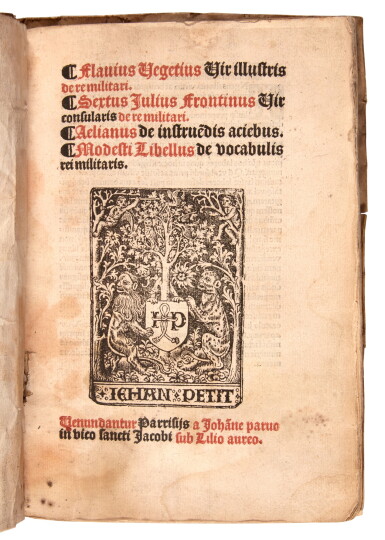 ¶ Flavius Vegetius Vir illustris
de re militari.
¶ Sextus Julius Frontinus Vir
consularis de re militari.
¶ Aelianus de instruẽdis aciebus.
¶ Modesti Libellus de vocabulis
rei militaris.
HP
IEHAN PETIT
Venundantur Parrisijs a Johãne paruo
in vico sancti Jacobi sub Lilio aureo.